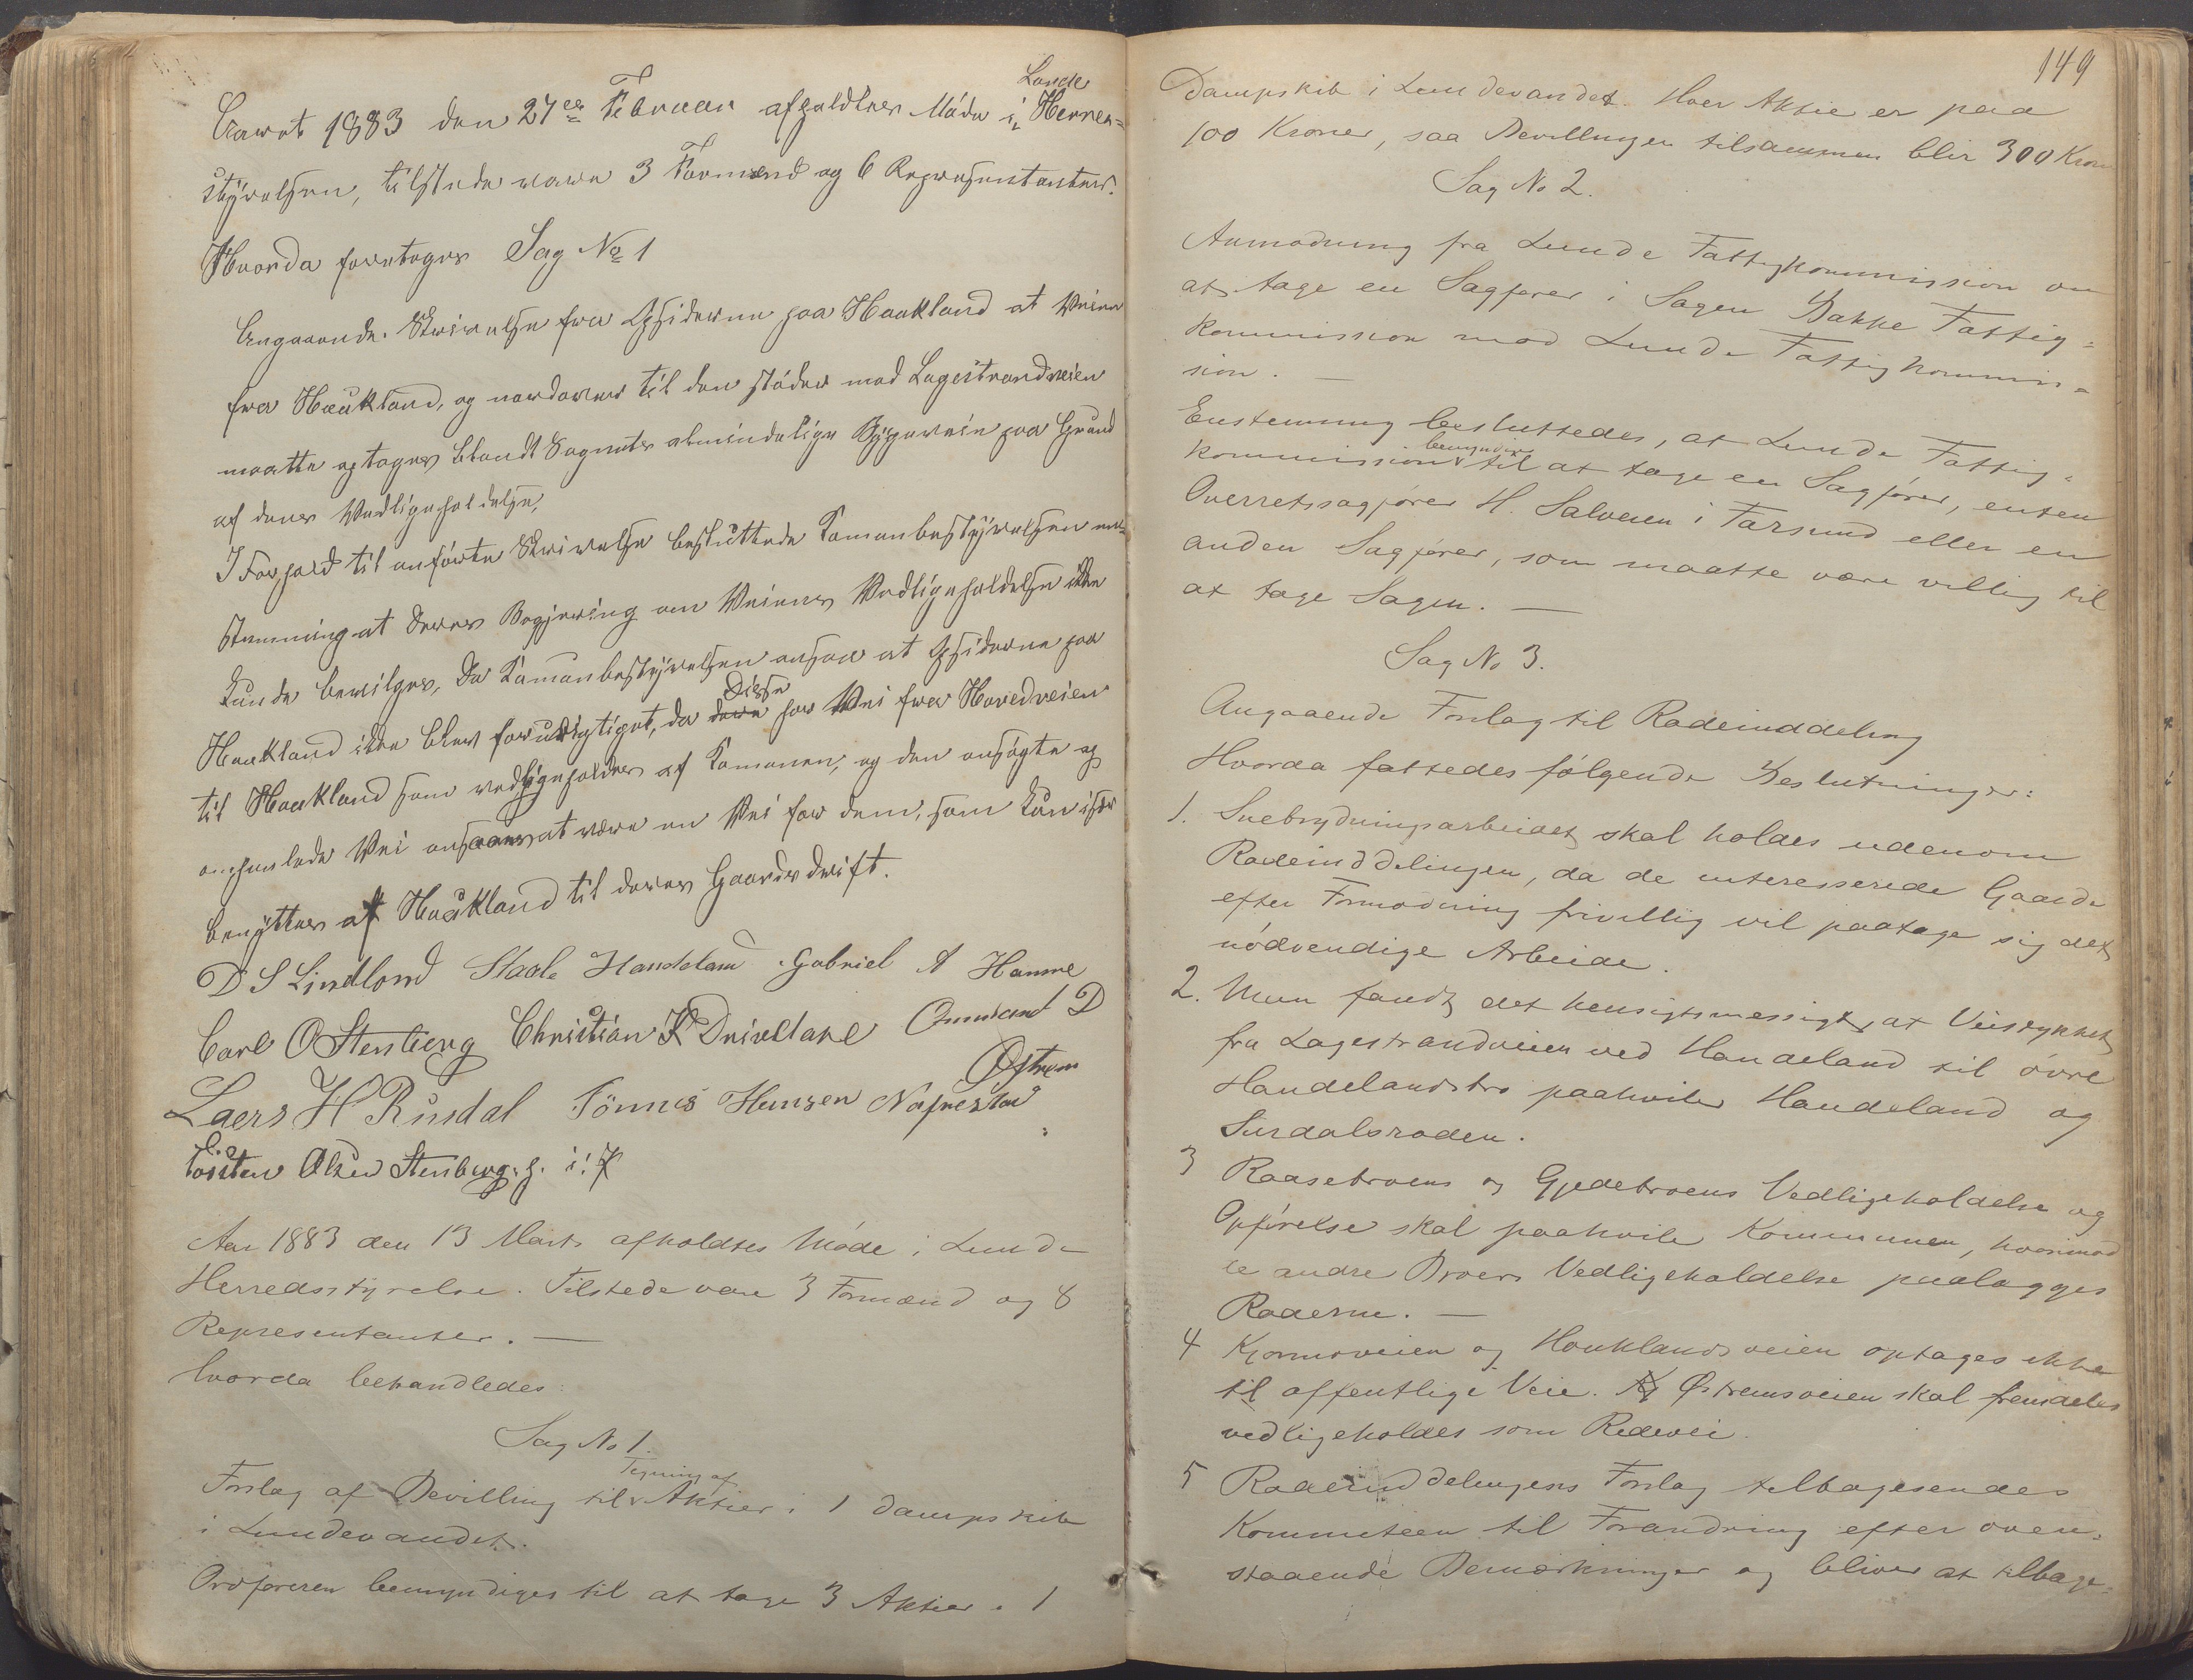 Aaret 1883 den 27de Februar afholdtes Møde i Lunde Herreds=
styrelsen, tilstede vare 3 Formænd og 6 Repræsentanter.
Hvorda foretoges Sag No 1
Angaaende. Skrivelse fra Opsiderne paa Haukland at Veien
fra Haukland, og nordover til den støder mod Lagestrandveien
maatte optages blandt Sognets almindelige Bygdeveie paa Grund
af denes Vedligeholdelse,
I Forhold til anførte Skrivelse besluttede Komunbestyrelsen een=
stemming at deres Begjæring om Veienes Vedligeholdelse ikke
kunde bevilges, da Komunbestyrelsen ansaa at Opsiderne paa
Haukland ikke blev forurettiget, da disse har Vei fra Hovedveien
til Haukland som vedligeholdes af Komunen, og den ansøgte og
omhandlede Vei ansaaes at være en Vei for dem, som kun især
benyttes af Haukland til deres Gaards drift.
D S Lindland Staale Handeland Gabriel A Hamre
Carl O Stenberg Christian K Drivdland Ommund D
Østrem
Laers H Rusdal Tönnes Hansen Nafnestad
Tosten Olsen Stenberg. h. i. P
Aar 1883 den 13 Marts afholdtes Møde i Lunde
Herredsstyrelse. Tilstede vare 3 Formænd og 8
Representanter. —
hvorda behandledes:
Sag No 1.
Forslag af Bevilling til Tegning af Aktier i 1 Dampskib
i Lundevandet.
Ordføreren bemyndiges til at tage 3 Aktier i 1
149
Dampskib i Lundevandet. Hver Aktie er paa
100 Kroner, saa Bevillingen tilsammen blir 300 Kron
Sag No 2.
Anmodning fra Lunde Fattigkommission om
at tage en Sagfører i Sagen Bakke Fattig=
kommission mod Lunde Fattigkommis=
sion. —
Enstemmig besluttedes, at Lunde Fattig=
kommission bemyndiges til at tage en Sagfører, enten
Overretssagfører H. Salvesen i Farsund eller en
anden Sagfører, som maatte være villig til
at tage Sagen. —
Sag No 3.
Angaaende Forslag til Rodeinddeling
Hvorda fattedes følgende Beslutninger:
1. Snebrydningsarbeidet skal holdes udenom
Rodeinddelingen, da de interesserede Gaarde
efter Formodning frivillig vil paatage sig det
nødvendige Arbeide.
2. Man fandt det hensigtsmessigt, at Veistykket
fra Lagestrandveien ved Handeland til øvre
Handelandsbro paahviler Handeland og
Surdalsroden.
3 Raasebroens og Gjedebroens Vedligeholdelse og
Opførelse skal paahvile Kommunen, hvorimod
de andre Broers Vedligeholdelse paalægges
Roderne. —
4 Kjormoveien og Hauklandsveien optages ikke
til offentlige Veie. Østremsveien skal fremdeles
vedligeholdes som Rodevei.
5 Rodeinddelingens Forslag tilbagesendes
Kommiteen til Forandring efter oven=
staaende Bemærkninger og bliver at tilbage=